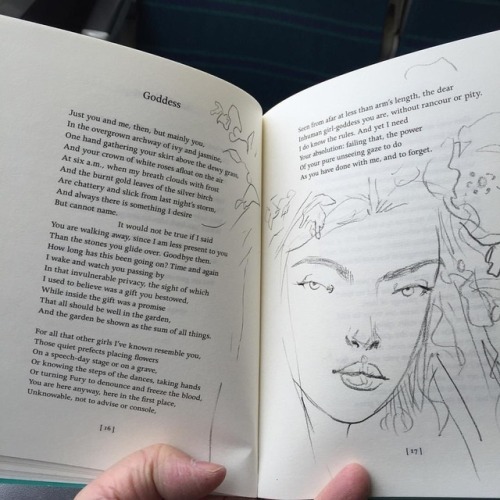 Goddess
Just you and me, then, but mainly you,
In the overgrown archway of ivy and jasmine,
One hand gathering your skirt above the dewy grass,
And your crown of white roses afloat on the air
At six a.m., when my breath clouds with frost
And the burnt gold leaves of the silver birch
Are chattery and slick from last night's storm,
And always there is something I desire
But cannot name.
It would not be true if I said
You are walking away, since I am less present to you
Than the stones you glide over. Goodbye then.
How long has this been going on? Time and again
I wake and watch you passing by
In that invulnerable privacy, the sight of which
I used to believe was a gift you bestowed.
While inside the gift was a promise
That all should be well in the garden,
And the garden be shown as the sum of all things.
For all that other girls I've known resemble you,
Those quiet prefects placing flowers
On a speech-day stage or on a grave,
Or knowing the steps of the dances, taking hands
Or turning Fury to denounce and freeze the blood,
You are here anyway, here in the first place,
Unknowable, not to advise or console,
[16]
Seen from afar at less than arm's length, the dear
Inhuman girl-goddess you are, without rancour or pity.
I do know the rules. And yet I need
Your absolution: failing that, the power
Of your pure unseeing gaze to do
As you have done with me, and to forget.
[17]